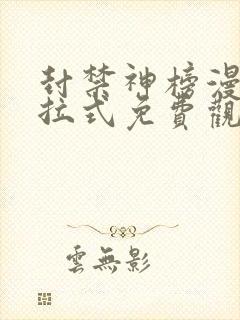 封禁神榜漫
拉式免費觀
雲無影